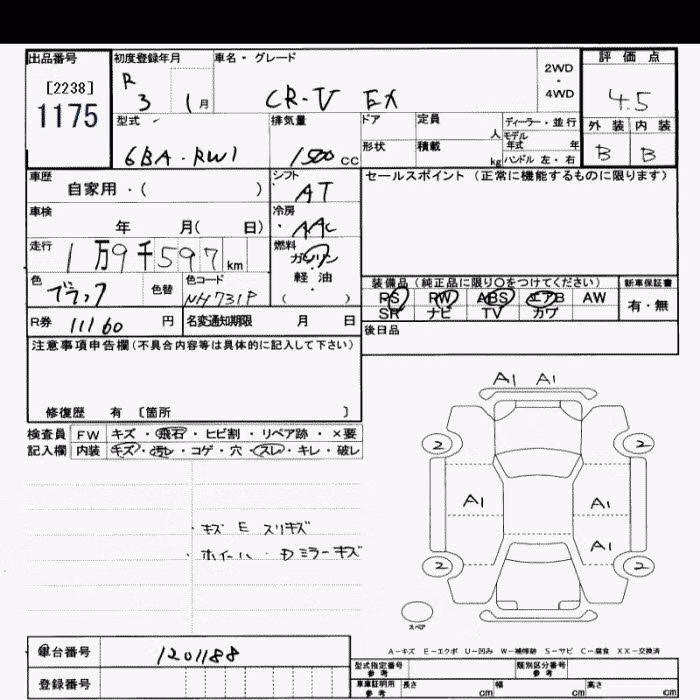 出品番号 初度登録年月 車名・グレード 2WD・4WD 評価点
[2238] R
1175 3 1月 CR-V EX 4.5
型式 排気量 ドア 定員 人 ディーラー・並行 外装 内装
6BA・RW1 1500cc 形状 積載 kg モデル年式 年 B B
ハンドル 左・右
車歴 シフト セールスポイント (正常に機能するものに限ります)
自家用・( ) AT
車検 冷房
年 月( 日) AAC
走行 燃料
1万9千597km ガソリン
軽油
( )
色 色替 色コード 装備品(純正品に限り〇をつけてください) 新車保証書
ブラック NH731P PS RW ABS エアB AW 有・無
SR ナビ TV カワ
R券 11160 円 名変通知期限 月 日 後日品
注意事項申告欄(不具合内容等は具体的に記入して下さい)
修復歴 有 〔箇所 〕
検査員 FW キズ・飛石・ヒビ割・リペア跡・×要
記入欄 内装 キズ・汚レ・コゲ・穴・スレ・キレ・破レ
・キズ E スリキズ
・ホイール・Dミラーキズ
A1 A1
2 2
A1 A1
A1
2 2
スペア
A-キズ E-エクボ U-凹み W-補修跡 S-サビ C-腐食 XX-交換済
車台番号 1201188
登録番号
型式指定番号 参考 類別区分番号 参考
車庫証明用 参考 長さ cm 幅 cm 高さ cm